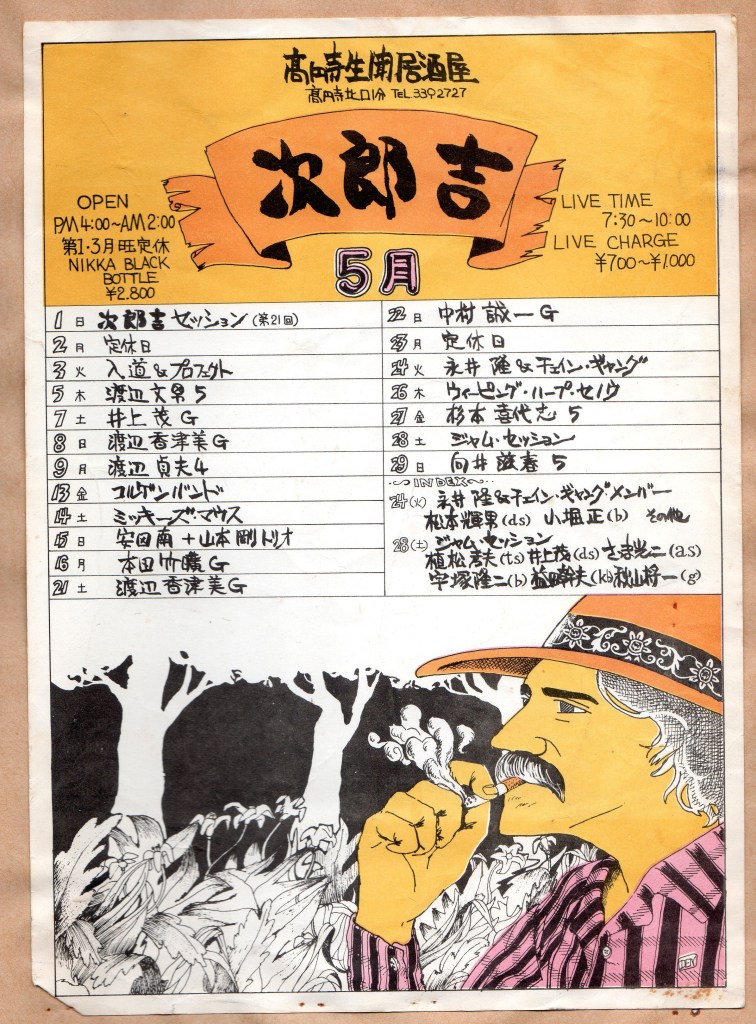 高円寺生聞居酒屋
高円寺北口1分 TEL 339 2727
次郎吉
OPEN
PM 4:00~AM 2:00
第1・3月曜定休
NIKKA BLACK
BOTTLE
¥2.800
LIVE TIME
7:30~10:00
LIVE CHARGE
¥700~¥1.000
5月
1 日 次郎吉セッション(第21回)
2 月 定休日
3 火 入道&プロフェクト
5 木 渡辺文男 5
7 土 井上茂 G
8 日 渡辺香津美 G
9 月 渡辺貞夫 4
13 金 コルゲンバンド
14 土 ミッキーズ・マウス
15 日 安田南+山本剛トリオ
16 月 本田竹曠 G
21 土 渡辺香津美 G
22 日 中村誠一 G
23 月 定休日
24 火 永井隆&チェイン・ギャング
26 木 ウィーピング・ハープ・セノウ
27 金 杉本喜代志 5
28 土 ジャム・セッション
29 日 向井滋春 5
INDEX
24(火) 永井隆&チェイン・ギャングメンバー
松本輝男(ds) 小堀正(b) その他
28(土) ジャム・セッション
植松孝夫(t.s) 井上茂(ds) (a.s)
宇塚隆二(b) 益田幹夫(k) 秋山将一(g)